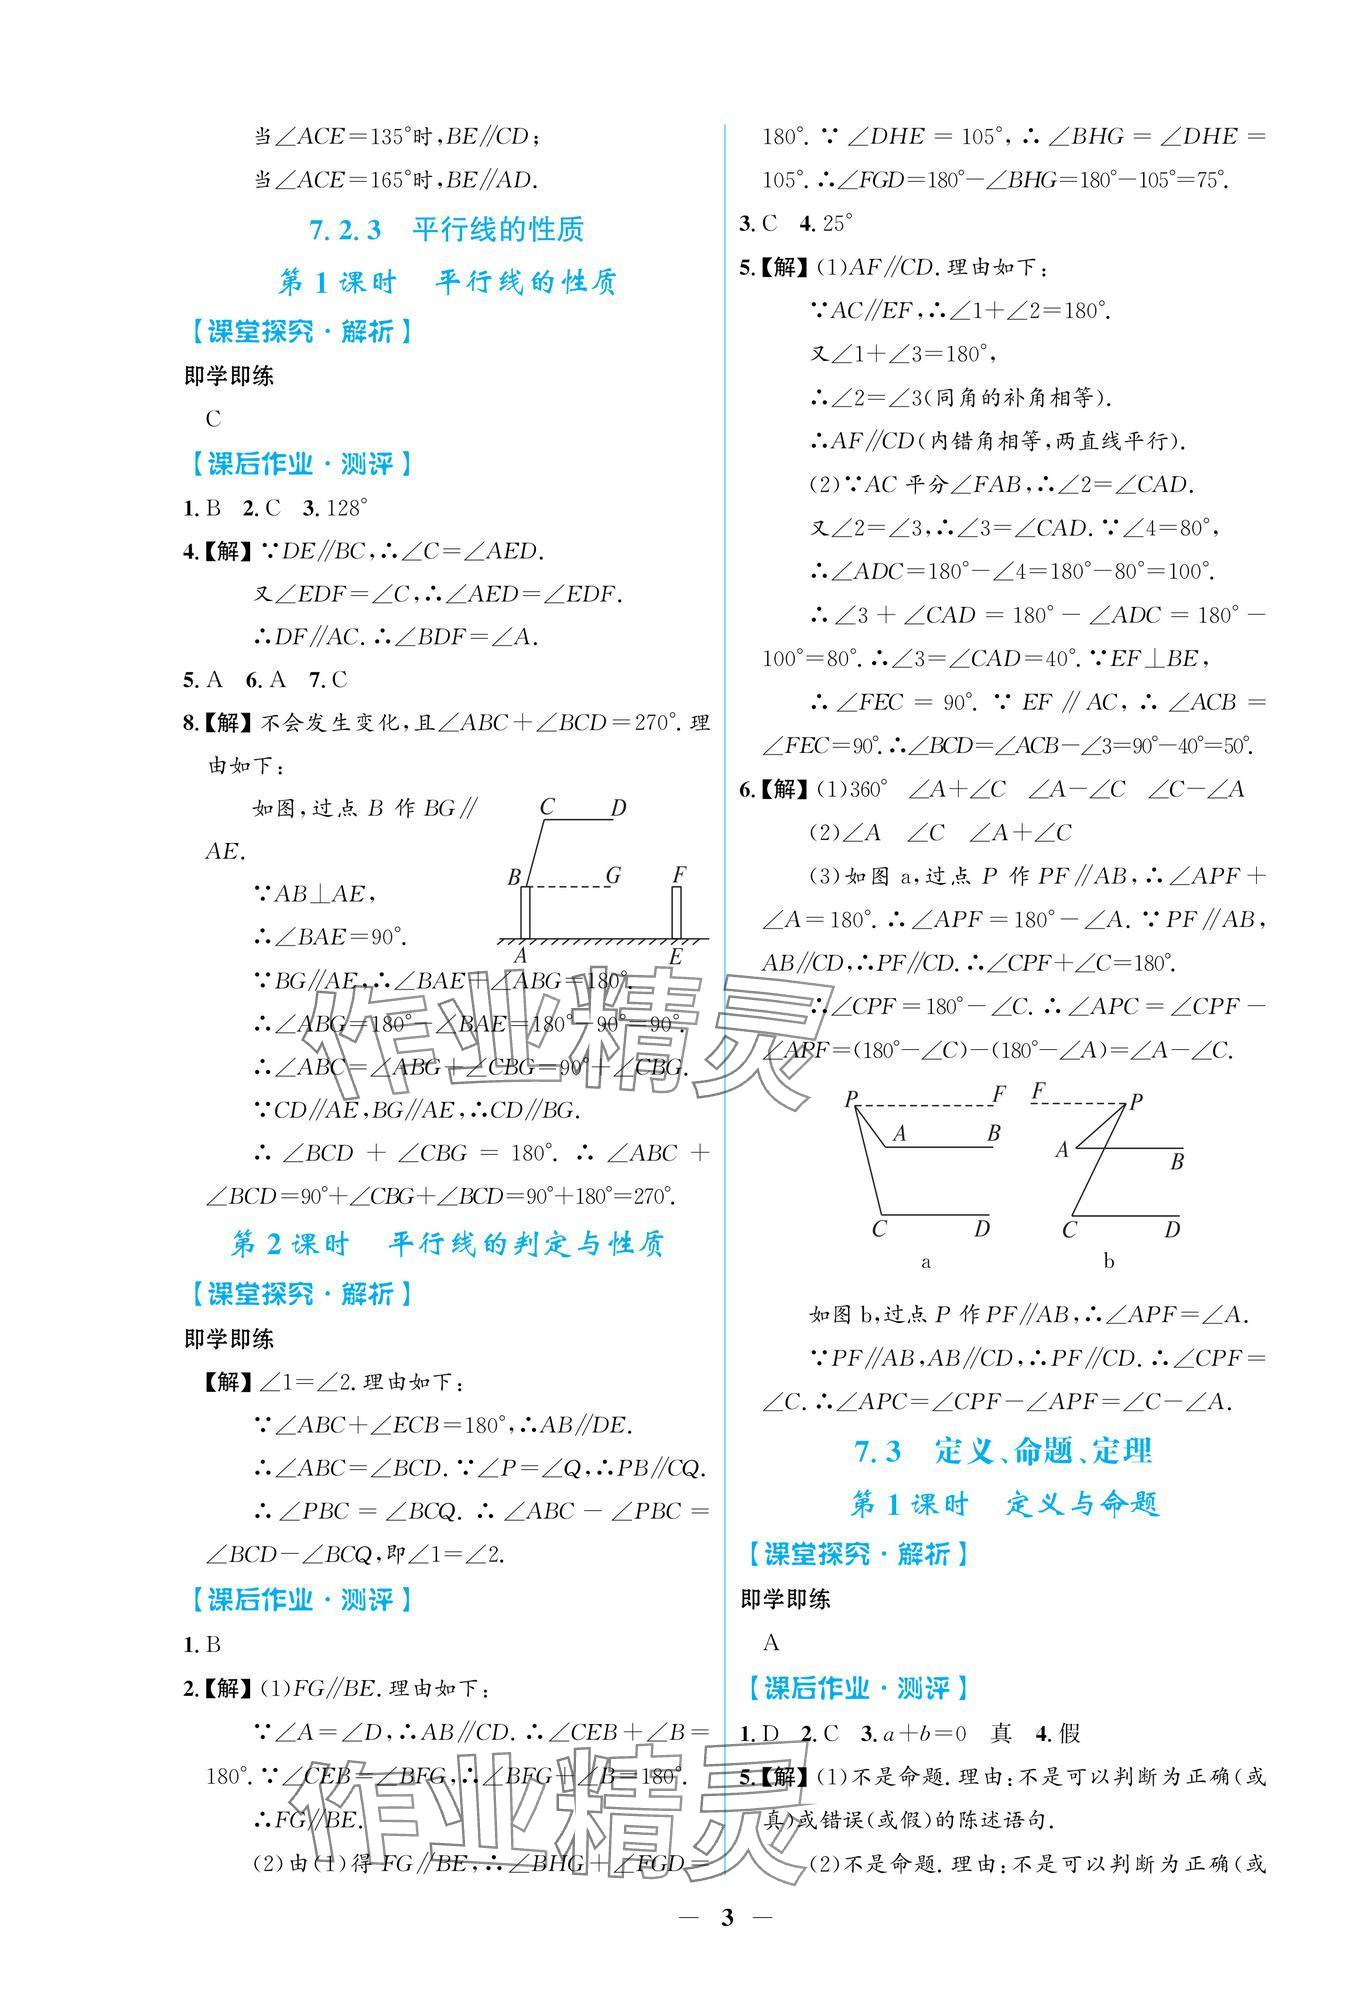 当∠ACE=135°时,BE∥CD;
当∠ACE=165°时,BE∥AD.
7.2.3 平行线的性质
第1课时 平行线的性质
【课堂探究·解析】
即学即练
C
【课后作业·测评】
1.B 2.C 3.128°
4.【解】∵DE∥BC,∴∠C=∠AED.
又∠EDF=∠C,∴∠AED=∠EDF.
∴DF∥AC.∴∠BDF=∠A.
5.A 6.A 7.C
8.【解】不会发生变化,且∠ABC+∠BCD=270°.理
由如下:
如图,过点 B 作 BG∥
AE.
∵AB⊥AE,
∴∠BAE=90°.
C D
B G F
A E
∵BG∥AE,∴∠BAE+∠ABG=180°.
∴∠ABG=180°-∠BAE=180°-90°=90°.
∴∠ABC=∠ABG+∠CBG=90°+∠CBG.
∵CD∥AE,BG∥AE,∴CD∥BG.
∴∠BCD+∠CBG=180°.∴∠ABC+
∠BCD=90°+∠CBG+∠BCD=90°+180°=270°.
第2课时 平行线的判定与性质
【课堂探究·解析】
即学即练
【解】∠1=∠2.理由如下:
∵∠ABC+∠ECB=180°,∴AB∥DE.
∴∠ABC=∠BCD.∵∠P=∠Q,∴PB∥CQ.
∴∠PBC=∠BCQ.∴∠ABC-∠PBC=
∠BCD-∠BCQ,即∠1=∠2.
【课后作业·测评】
1.B
2.【解】(1)FG∥BE.理由如下:
∵∠A=∠D,∴AB∥CD.∴∠CEB+∠B=
180°.∵∠CEB=∠BFG,∴∠BFG+∠B=180°.
∴FG∥BE.
(2)由(1)得 FG∥BE,∴∠BHG+∠FGD=
180°.∵∠DHE=105°,∴∠BHG=∠DHE=
105°.∴∠FGD=180°-∠BHG=180°-105°=75°.
3.C 4.25°
5.【解】(1)AF∥CD.理由如下:
∵AC∥EF,∴∠1+∠2=180°.
又∠1+∠3=180°,
∴∠2=∠3(同角的补角相等).
∴AF∥CD(内错角相等,两直线平行).
(2)∵AC 平分∠FAB,∴∠2=∠CAD.
又∠2=∠3,∴∠3=∠CAD.∵∠4=80°,
∴∠ADC=180°-∠4=180°-80°=100°.
∴∠3+∠CAD=180°-∠ADC=180°-
100°=80°.∴∠3=∠CAD=40°.∵EF⊥BE,
∴∠FEC=90°.∵EF∥AC,∴∠ACB=
∠FEC=90°.∴∠BCD=∠ACB-∠3=90°-40°=50°.
6.【解】(1)360° ∠A+∠C ∠A-∠C ∠C-∠A
(2)∠A ∠C ∠A+∠C
(3)如图 a,过点 P 作 PF∥AB,∴∠APF+
∠A=180°.∴∠APF=180°-∠A.∵PF∥AB,
AB∥CD,∴PF∥CD.∴∠CPF+∠C=180°.
∴∠CPF=180°-∠C.∴∠APC=∠CPF-
∠APF=(180°-∠C)-(180°-∠A)=∠A-∠C.
P F F P
A B A B
C D C D
a b
如图 b,过点 P 作 PF∥AB,∴∠APF=∠A.
∵PF∥AB,AB∥CD,∴PF∥CD.∴∠CPF=
∠C.∴∠APC=∠CPF-∠APF=∠C-∠A.
7.3 定义、命题、定理
第1课时 定义与命题
【课堂探究·解析】
即学即练
A
【课后作业·测评】
1.D 2.C 3.a+b=0 真 4.假
5.【解】(1)不是命题.理由:不是可以判断为正确(或
真)或错误(或假)的陈述语句.
(2)不是命题.理由:不是可以判断为正确(或
作业精灵
作业精灵
— 3 —